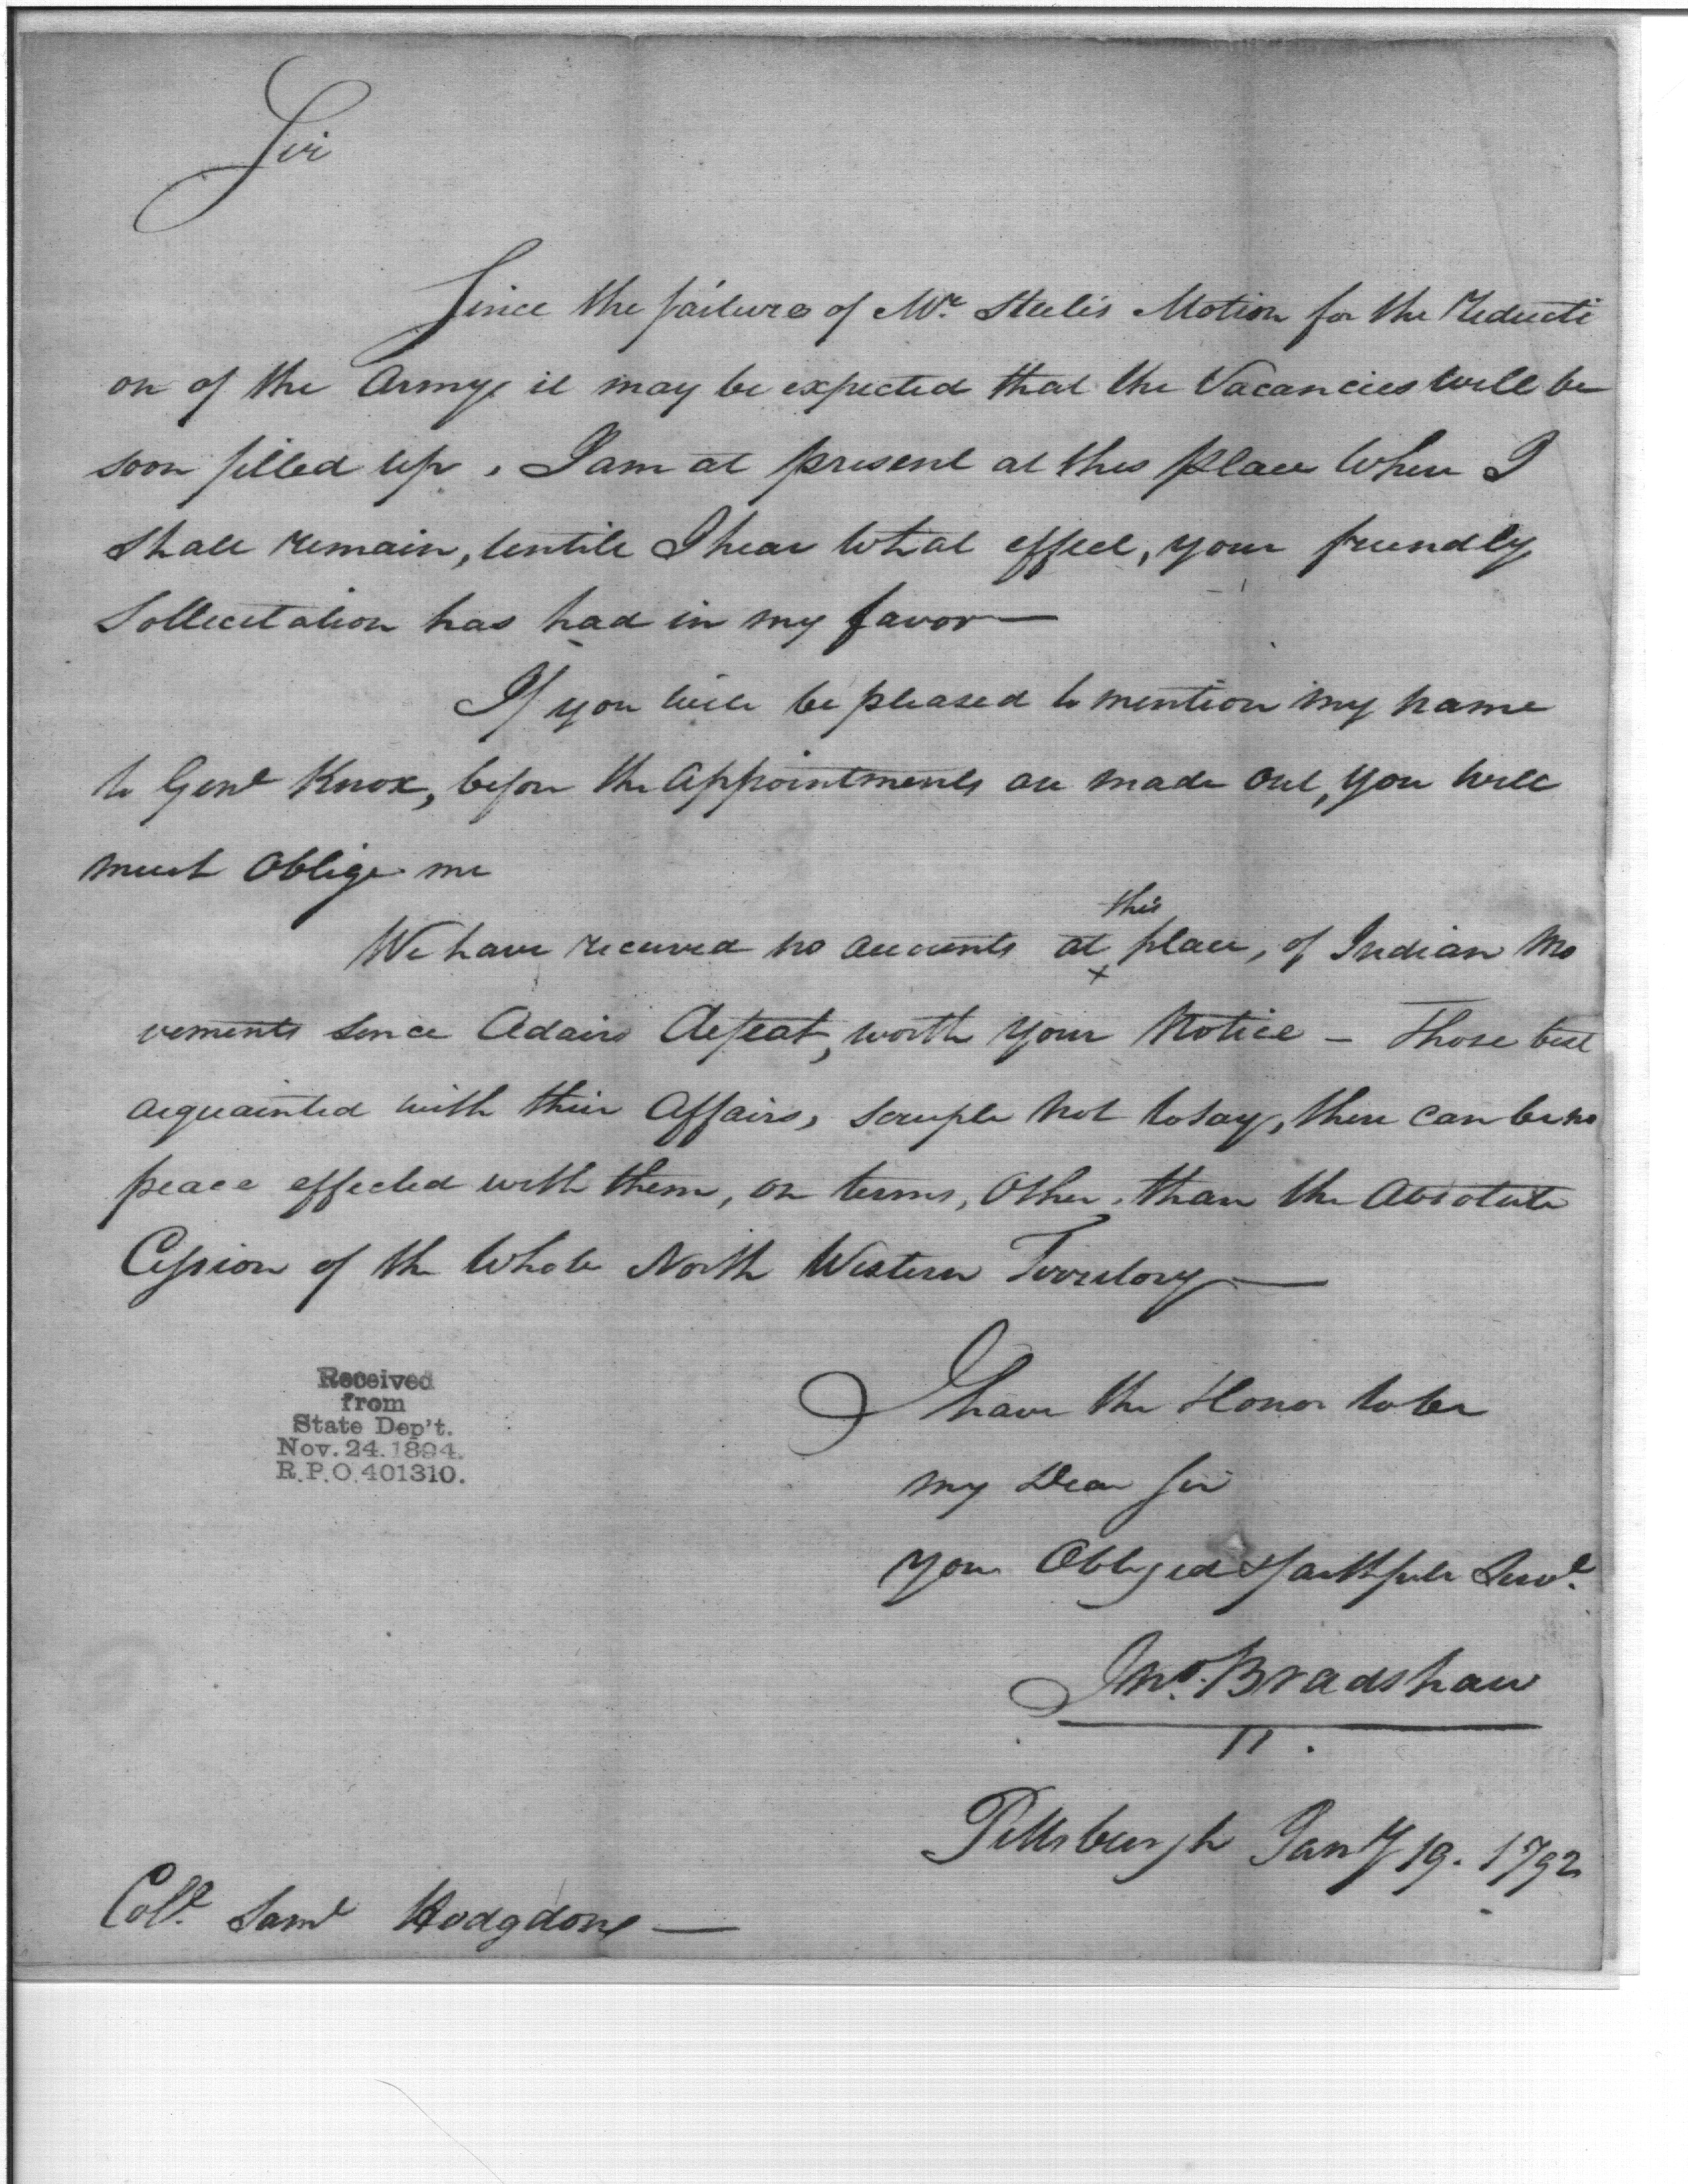 Sir
Since the failure of Mr. Steele's Motion for the Reducti
on of the Army, it may be expected that the Vacancies will be
soon filled up. I am at present at this place where I
shall remain, untill I hear what effect, your friendly
Sollicitation has had in my favor—
If you will be pleased to mention my name
to Genl Knox, before the appointments are made out, you will
much oblige me
We have received no accounts at this place, of Indian Mo
vements since Adairs defeat, worth your Notice – Those best
acquainted with their Affairs, scruple not to say, there can be no
peace effected with them, on terms, other than the absolute
Cession of the Whole North Western Territory—
Received
from
State Dep't.
Nov. 24. 1894.
R.P.O. 401310.
I have the Honor to be
my Dear Sir
your Obliged & faithfull Servt.
Jno. Bradshaw
Pittsburgh Jany 19. 1792
Coll. Saml Hodgdon—